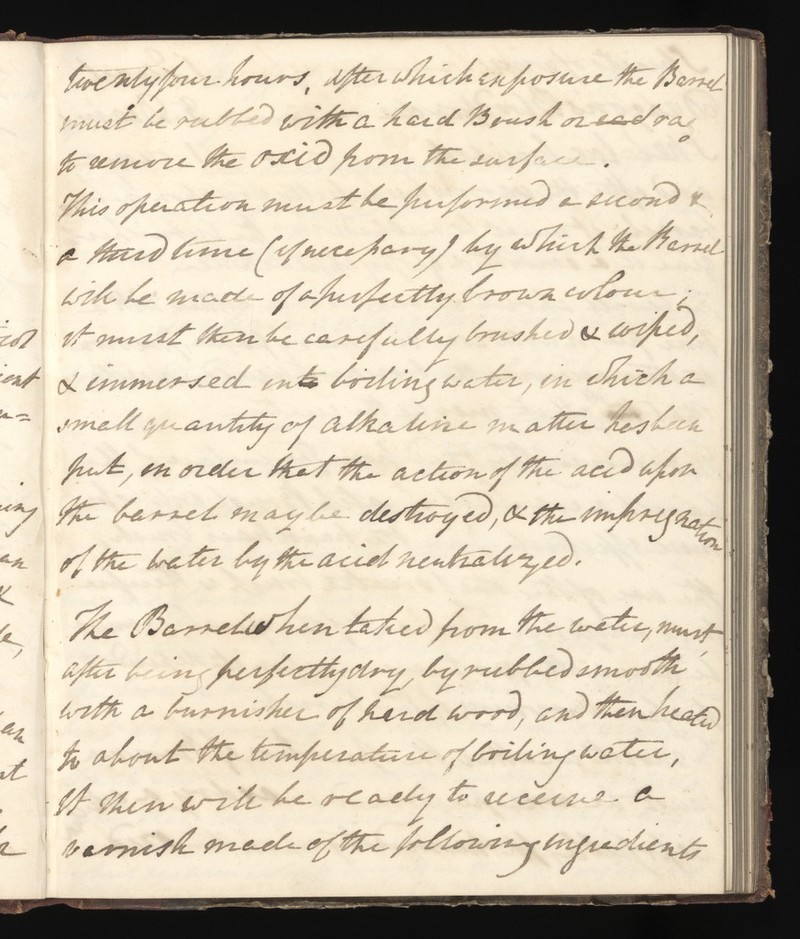 twenty four hours, after which exposure the Barrel
must be rubbed with a hard Brush or rag
to remove the oxid from the surface.
This operation must be performed a second &
a third time (if necessary) by which the Barrel
will be made of a perfectly brown colour;
it must then be carefully brushed & wiped,
& immersed into boiling water, in which a
small quantity of alkaline matter has been
put, in order that the action of the acid upon
the barrel may be destroyed, & the impregnation
of the water by the acid neutralized.
The Barrel when taked from the water, must,
after being perfectly dry, by rubbed smooth
with a burnisher of hard wood, and then heated
to about the temperature of boiling water,
it then will be ready to receive a
varnish made of the following ingredients